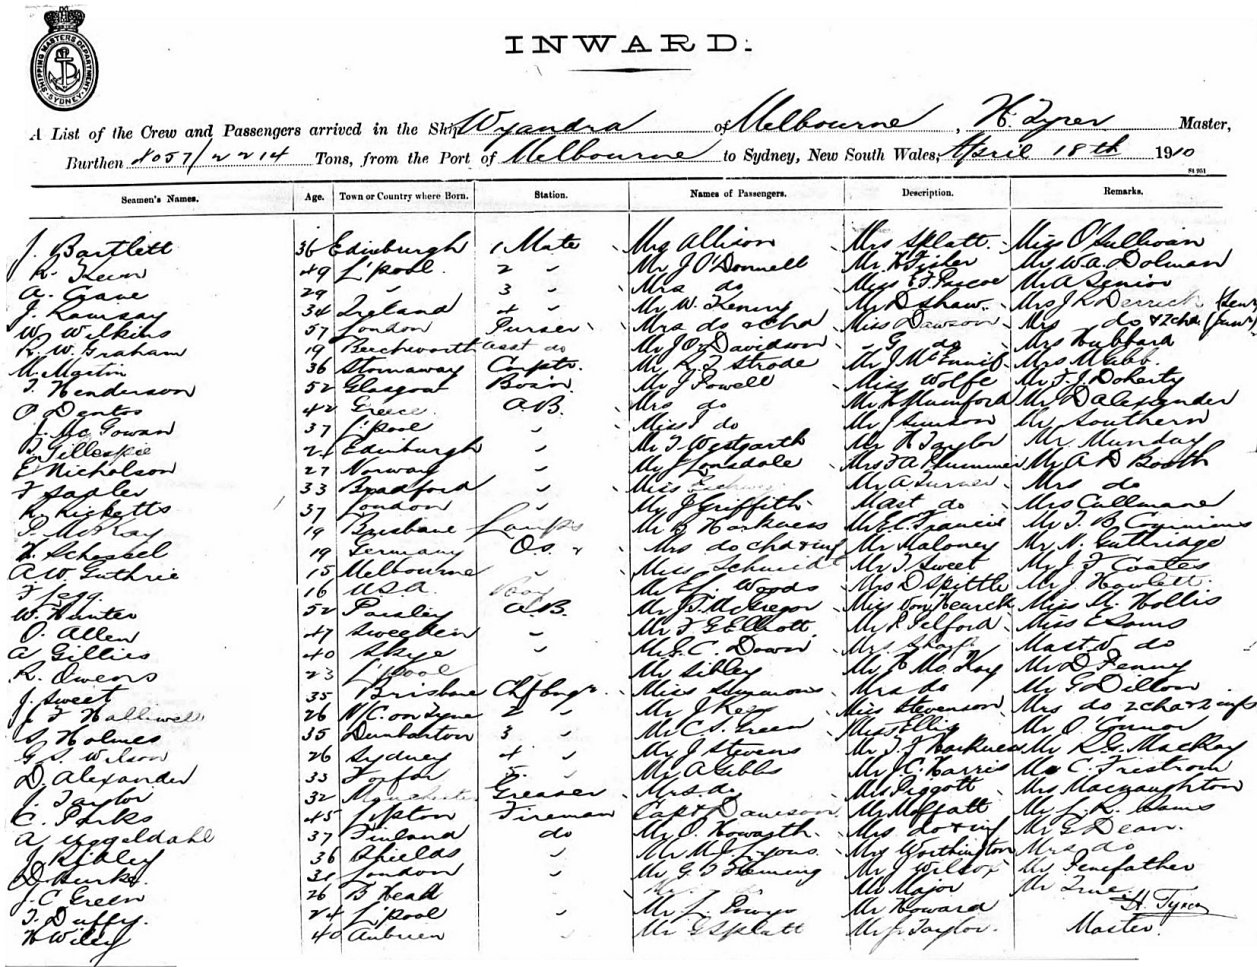 SHIPPING MASTERS DEPARTMENT SYDNEY
INWARD.
A List of the Crew and Passengers arrived in the Ship Wyandra of Melbourne, H. Tyrer Master,
Burthen No 57/2214 Tons, from the Port of Melbourne to Sydney, New South Wales, April 18th 1910
S1 951
Seamen's Names. Age. Town or Country where Born. Station. Names of Passengers. Description. Remarks.
J. Bartlett 36 Edinburgh 1 Mate Mrs Allison Mrs Splatt Miss O'Sullivan
K. 49 L'pool 2 " Mr J O'Donnell Mr H Fisher Mr W.A. Dolman
A. Crane 29 " 3 " Mrs do Miss E F Pascoe Mr A Senior
J. Ramsay 34 Ireland 4 " Mr W. Kenny Mr D Shaw Mrs J K Derrick (Senr)
W. Wilkins 57 London Purser Mrs do & chd Miss Dawson Mrs do & 2 chd (Junr)
R. W. Graham 19 Beechworth asst do Mr J O Davidson " G do Mrs Hubbard
M. Martin 36 Stornaway Carptr. Mr R F Strode Mr J Mrs M Gibb
T. Henderson 52 Glasgow Bosin Mr J Powell Miss Wolfe Mr F. J. Doherty
P. Dentos 42 Greece A.B. Mrs do Mr H Mumford Mr D Alexander
J. McGowan 37 L'pool " Miss do Mr J Simson Mr Southern
B. Gillespie 21 Edinburgh " Mr T Westgarth Mr H Taylor Mr Munday
E. Nicholson 27 Norway " Mr J Lonsdale Mrs F A Plummer Mr A D Booth
F Sadler 33 Bradford " Miss Mr A Turner Mrs do
R. Ricketts 37 London " Mr J Griffith Mast do Mrs Cullinane
P. McKay 19 Brisbane Lamps Mr B Harkness Mr E.C. Francis Mr T. B.
H. Schossel 19 Germany O.S. Mrs do chd & inf Mr Maloney Mr N. Guthridge
A W. Guthrie 15 Melbourne " Miss Schmidt Mr T Sweet Mr J F Coates
F Legg 16 U.S.A. Boy Mr E. Woods Mrs D Spittle Mr J Howlett
W. Hunter 52 Paisley A.B. Mr J. F. McGregor Miss Miss M. Hollis
O. Allen 47 Sweeden " Mr F G Elliott Mr P Telford Miss E Sams
A Gillies 40 Skye " Mr G. C. Down Mrs Mast & do
R. Owens 23 L'pool " Mr Sibley Mr H McKay Mr D Fenny
J. Sweet 35 Brisbane Chf Engr. Miss Simmons Mrs do Mr G Dillon
J. F Halliwell 26 N/C. on Tyne 2 " Mr J Kees Miss Stevenson Mrs do 2 chd & 2 infs
S. Holmes 35 Dunbarton 3 " Mr C S. Green Miss Ellis Mr O'Connor
G. S. Wilson 26 Sydney 4 " Mr J Stevens Mr T. F Harkness Mr R. G. Macklay
D. Alexander 33 5 " Mr A Gibbs Mr J. C. Harris Mr C. Fristrom
J. Taylor 32 Manchester Greaser Mrs do Mrs Piggott Mrs Macnaughton
C. Parks 45 Lipton Fireman Capt Dawson Mr Moffatt Mr L. R. Sams
A Uggeldahl 37 Finland do Mr O. Howarth Mrs do & inf Mr G Dean
J Ripley 36 Shields " Mr M. J. Lyons Mrs Worthington Mrs do
D Burke 31 London " Mr G F Fleming Mr J Wilcox Mr Penefather
J. C. Green 26 B Head do Mr Major Mr True
T. Duffy 24 L'pool " Mr L. Powys Mr Howard H. Tyrer
H Wiley 40 " Mr G Splatt Mr J. Taylor Master.